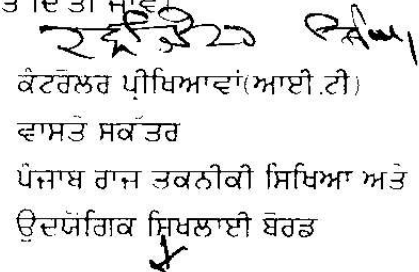 ਦਿੱਤੀ ਜਾਵੇ।
ਕੰਟਰੋਲਰ ਪ੍ਰੀਖਿਆਵਾਂ(ਆਈ.ਟੀ)
ਵਾਸਤੇ ਸਕੱਤਰ
ਪੰਜਾਬ ਰਾਜ ਤਕਨੀਕੀ ਸਿਖਿਆ ਅਤੇ
ਉਦਯੋਗਿਕ ਸਿਖਲਾਈ ਬੋਰਡ